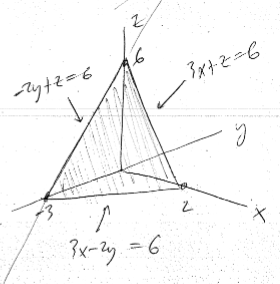 z
6
-2y+z=6
3x+z=6
y
-3
2
x
3x-2y = 6